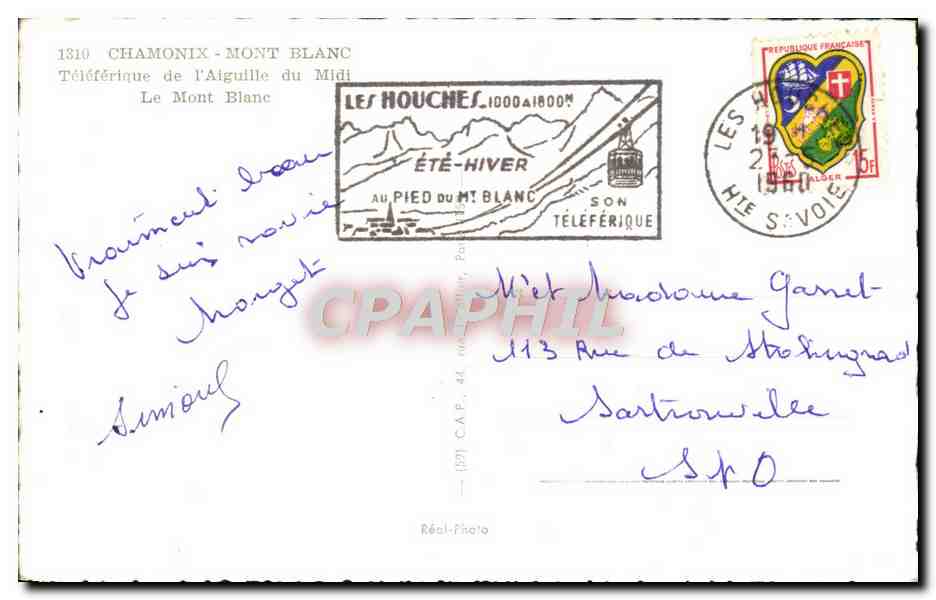 1310 CHAMONIX - MONT BLANC
Téléférique de l'Aiguille du Midi
Le Mont Blanc
LES HOUCHES_1000 A 1800 M
ÉTÉ-HIVER
AU PIED DU MT BLANC
SON
TÉLÉFÉRIQUE
LES H
19
1960
HTE SAVOIE
REPUBLIQUE FRANÇAISE
ALGER
15F
Vraiment beau
Je suis ravie
Margot
Simone
Mr et Madame Garret
113 Rue de Stalingrad
Sartrouville
S/O
(59) C.A.P., 44, rue
CPAPHIL
Réal-Photo